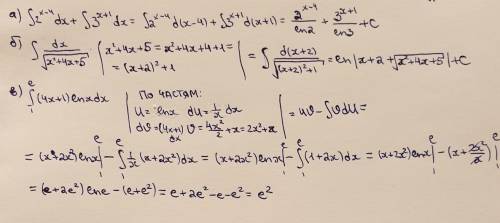 а) ∫2^(x-4)dx + ∫3^(x+1)dx = ∫2^(x-4)d(x-4) + ∫3^(x+1)d(x+1) = 2^(x-4)/ln2 + 3^(x+1)/ln3 + C
б) ∫dx/√(x²+4x+5) | x²+4x+5 = x²+4x+4+1 = = (x+2)²+1 | = ∫d(x+2)/√((x+2)²+1) = ln|x+2+√(x²+4x+5)|+C
в) ∫₁ᵉ(4x+1)lnxdx | ПО ЧАСТЯМ: U = lnx dU = 1/x dx dV = (4x+1)dx V = 4x²/2 + x = 2x²+x | = UV - ∫VdU =
= (x+2x²)lnx|₁ᵉ - ∫₁ᵉ 1/x (x+2x²)dx = (x+2x²)lnx|₁ᵉ - ∫₁ᵉ(1+2x)dx = (x+2x²)lnx|₁ᵉ - (x+2x²/2)|₁ᵉ
= (e+2e²)lne - (e+e²) = e+2e²-e-e² = e²